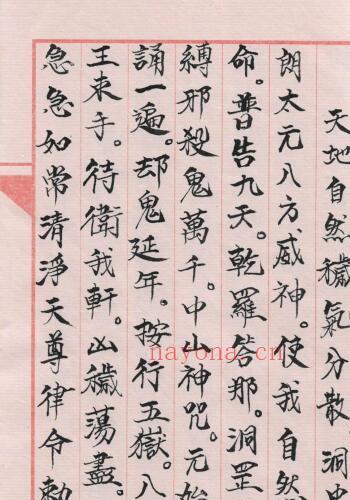 天地自然穢氣分散洞
朗太元八方威神。使我自然
命。普告九天。乾羅答那。洞罡
縛邪殺鬼萬千。中山神咒。元始
誦一遍。却鬼延年。按行五嶽。八
王束手。待衛我軒。凶穢蕩盡。
急急如常清淨天尊律令勅
nayona.cn